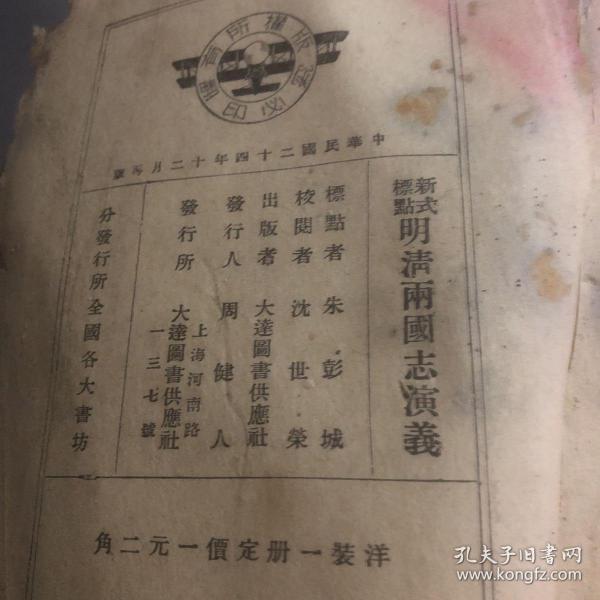 版權所有
翻印必究
中華民國二十四年十二月再版
新式標點 明清兩國志演義
標點者 朱彭城
校閱者 沈世榮
出版者 大達圖書供應社
發行人 周健人
發行所 大達圖書供應社
上海河南路
一三七號
分發行所 全國各大書坊
洋裝一册定價一元二角
孔夫子旧书网
www.kongfz.com